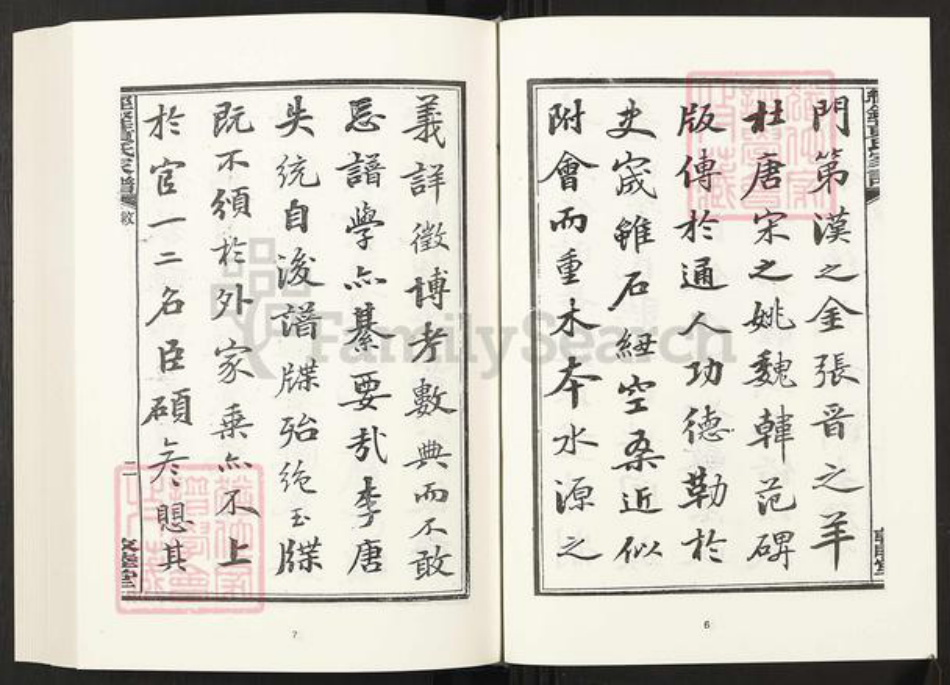 門第漢之金張晉之羊
杜唐宋之姚魏韓范碑
版傳於通人功德勒於
史宬雖石紐空桑近似
附會而重木本水源之
義詳徵博考數典而不敢
忘譜學亦綦要哉李唐
失統自浚譜牒殆絶玉牒
既不頒於外家乘亦不上
於官一二名臣碩彦慁其
二
6
7
FamilySearch